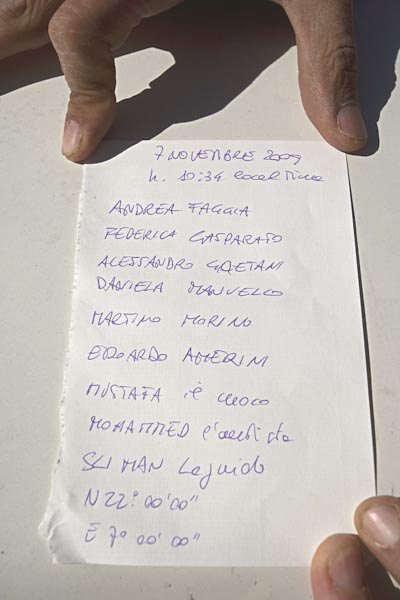 7 NOVEMBRE 2009
h. 10:34 local time
ANDREA FAGGIA
FEDERICA GASPARATO
ALESSANDRO GAETANI
DANIELA MANVELLO
MARTINO MORINO
EDOARDO AMERINI
MUSTAFA il cuoco
MOHAMMED l'autista
SLIMAN la guida
N 22° 00' 00"
E 7° 00' 00"